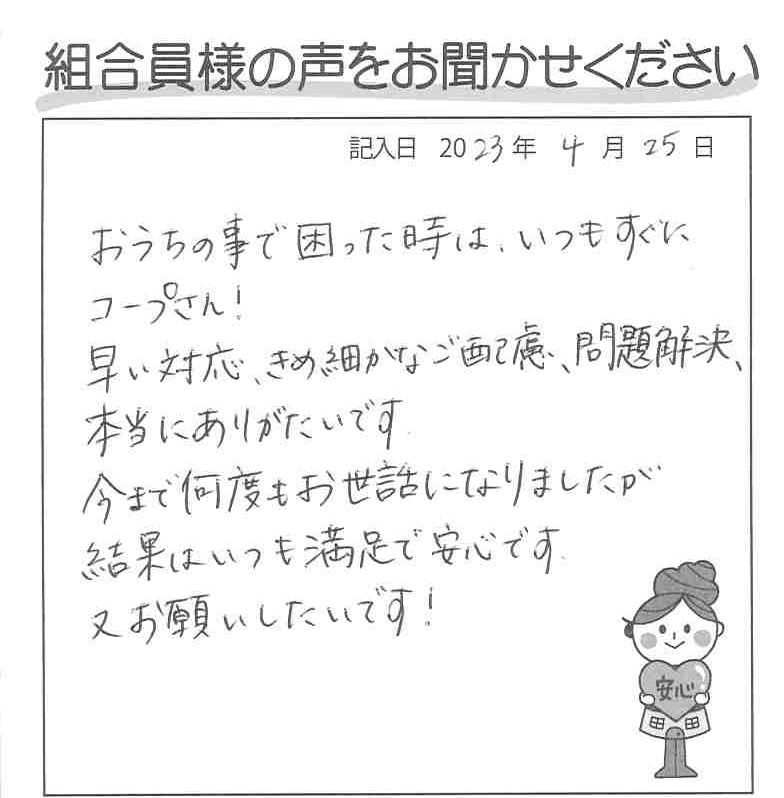 組合員様の声をお聞かせください
記入日 2023年 4月 25日
おうちの事で困った時は、いつもすぐに
コープさん!
早い対応、きめ細かなご配慮、問題解決、
本当にありがたいです.
今まで何度もお世話になりましたが
結果はいつも満足で安心です.
又お願いしたいです!
安心